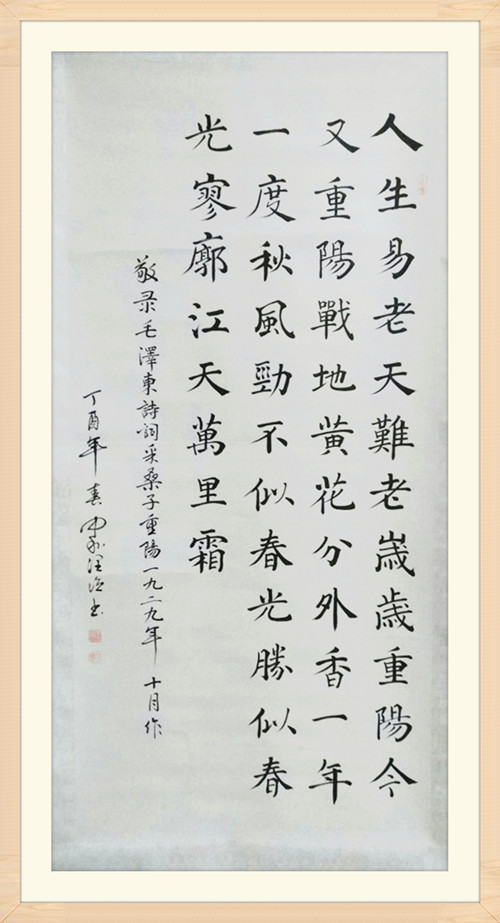 人生易老天難老歲歲重陽今
又重陽戰地黄花分外香一年
一度秋風勁不似春光勝似春
光寥廓江天萬里霜
敬录毛澤東詩詞采桑子重陽一九二九年十月作
丁酉年春书